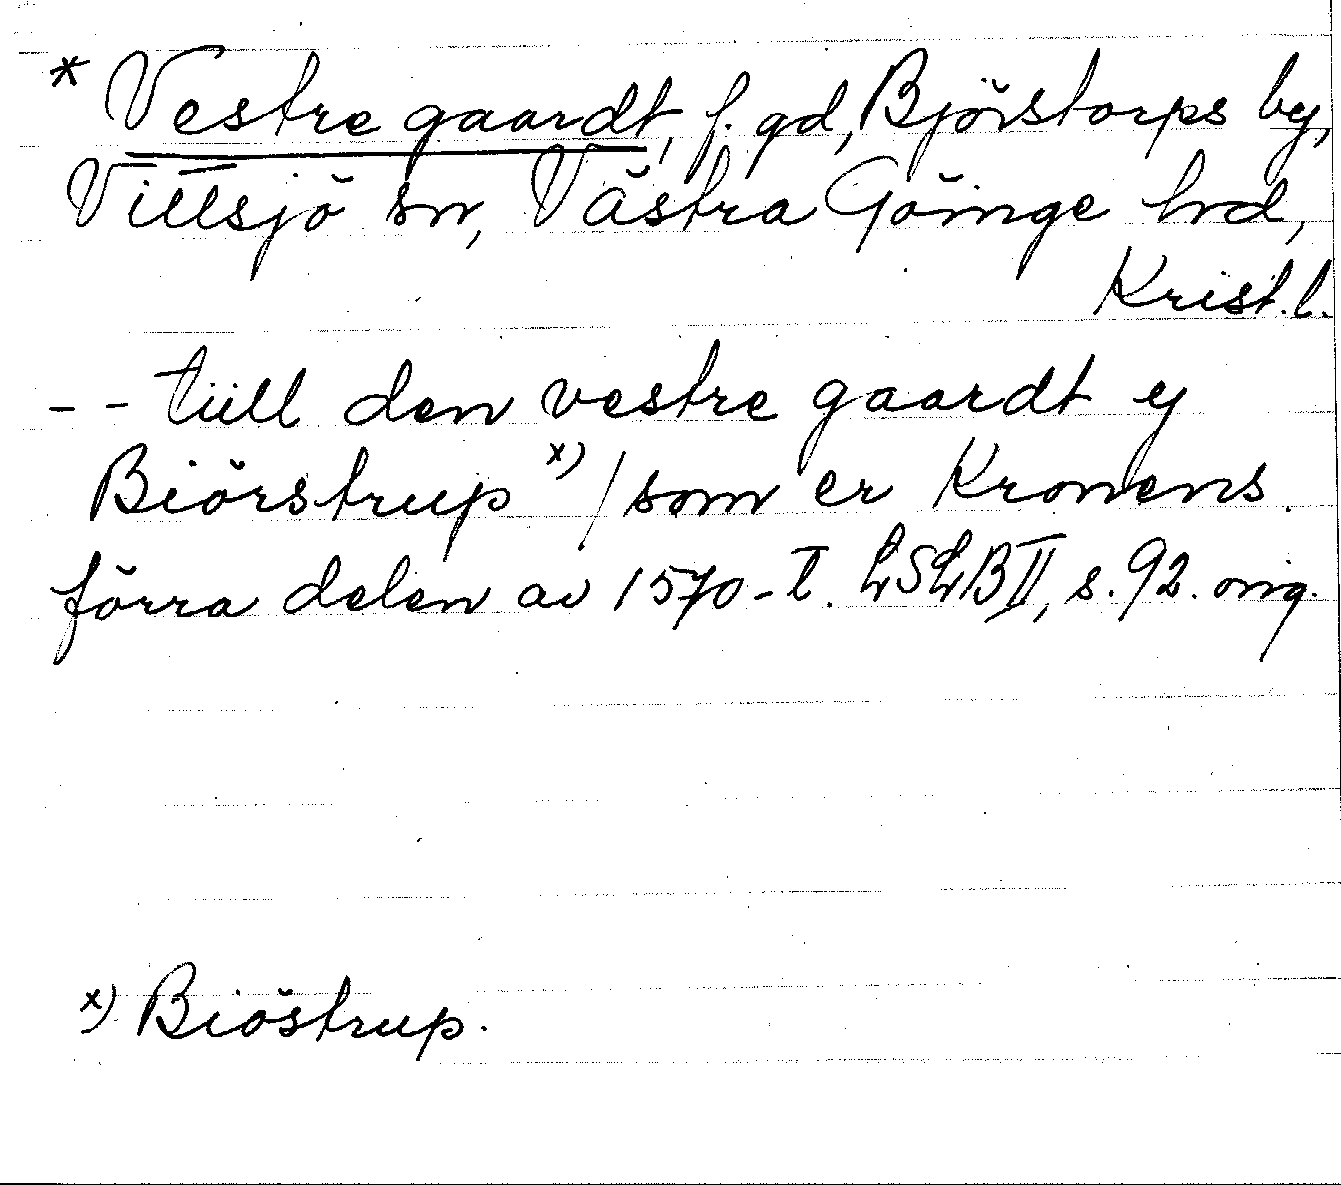 * Vestre gaardt, f. gd, Björstorps by,
Vittsjö sn, Västra Göinge hrd,
Krist. l.
- - tiill den vestre gaardt ij
Biörstrup x) / som er Kronens.
förra delen av 1570-t. LSLB II, s. 92. orig.
x) Biöstrup.